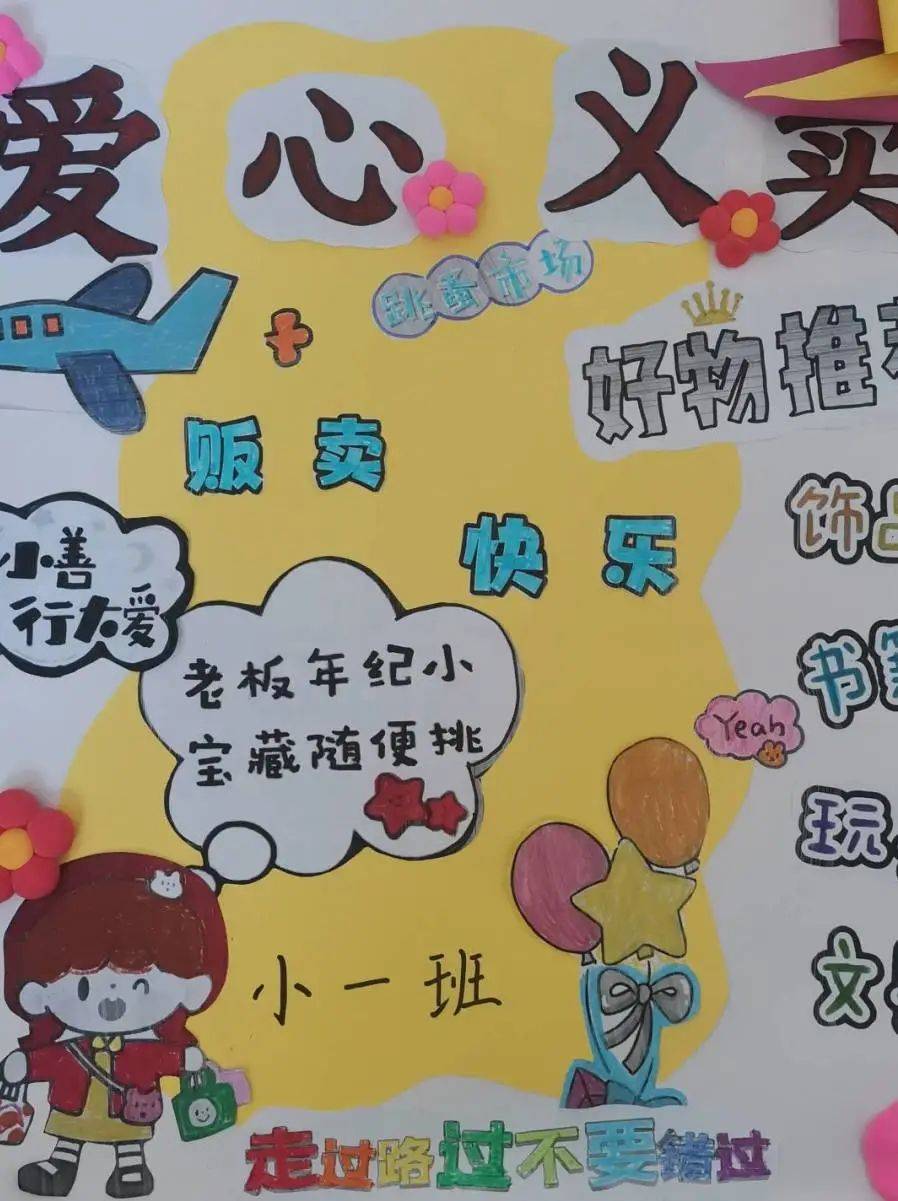 爱心义卖
跳蚤市场
好物推荐
贩卖
快乐
饰品
小善
行大爱
老板年纪小
宝藏随便挑
书籍
Yeah
玩
文
小一班
走过路过不要错过